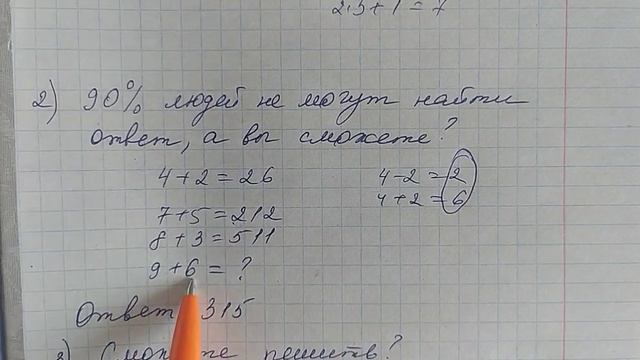 2·3+1=7
2) 90% людей не могут найти
ответ, а вы сможете?
4+2=26
4-2=2
4+2=6
7+5=212
8+3=511
9+6=?
Ответ 315
решить?